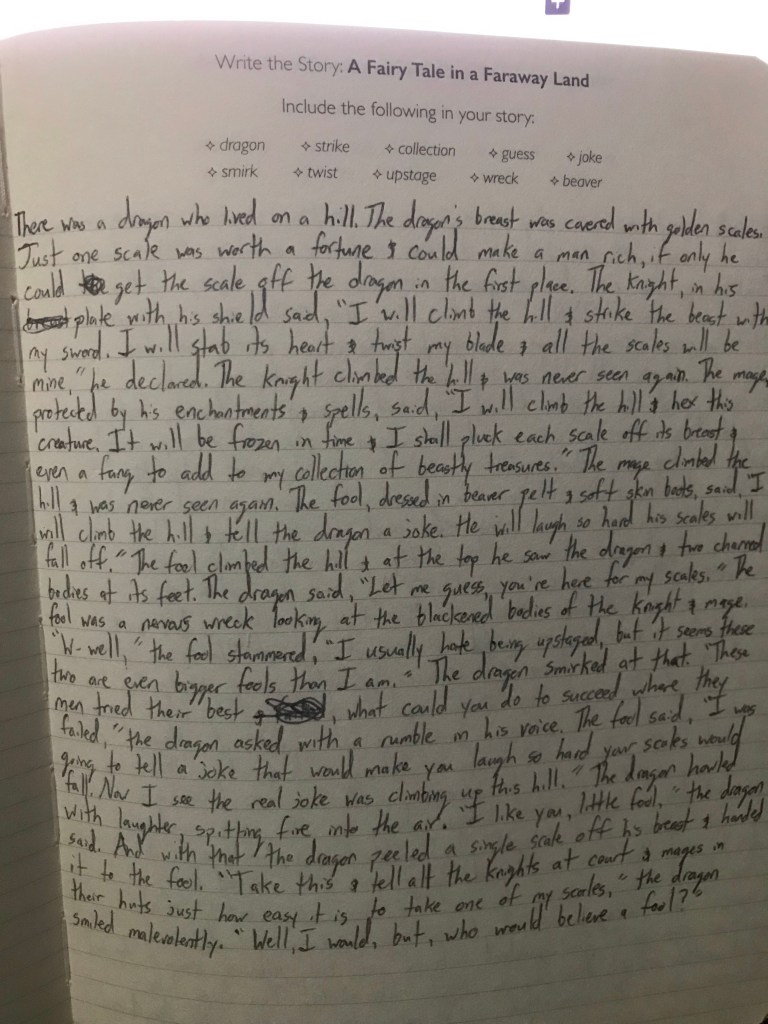 Write the Story: A Fairy Tale in a Faraway Land
Include the following in your story:
❖ dragon ❖ strike ❖ collection ❖ guess ❖ joke
❖ smirk ❖ twist ❖ upstage ❖ wreck ❖ beaver
There was a dragon who lived on a hill. The dragon's breast was covered with golden scales.
Just one scale was worth a fortune & could make a man rich, if only he
could get the scale off the dragon in the first place. The knight, in his
breast plate with his shield said, "I will climb the hill & strike the beast with
my sword. I will stab its heart & twist my blade & all the scales will be
mine," he declared. The knight climbed the hill & was never seen again. The mage,
protected by his enchantments & spells, said, "I will climb the hill & hex this
creature. It will be frozen in time & I shall pluck each scale off its breast &
even a fang to add to my collection of beastly treasures." The mage climbed the
hill & was never seen again. The fool, dressed in beaver pelt & soft skin boots, said, "I
will climb the hill & tell the dragon a joke. He will laugh so hard his scales will
fall off." The fool climbed the hill & at the top he saw the dragon & two charred
bodies at its feet. The dragon said, "Let me guess, you're here for my scales." The
fool was a nervous wreck looking at the blackened bodies of the knight & mage.
"W-well," the fool stammered, "I usually hate being upstaged, but it seems these
two are even bigger fools than I am." The dragon smirked at that. "These
men tried their best, what could you do to succeed where they
failed," the dragon asked with a rumble in his voice. The fool said, "I was
going to tell a joke that would make you laugh so hard your scales would
fall. Now I see the real joke was climbing up this hill." The dragon howled
with laughter, spitting fire into the air. "I like you, little fool," the dragon
said. And with that the dragon peeled a single scale off his breast & handed
it to the fool. "Take this & tell all the knights at court & mages in
their huts just how easy it is to take one of my scales," the dragon
smiled malevolently. "Well, I would, but, who would believe a fool?"